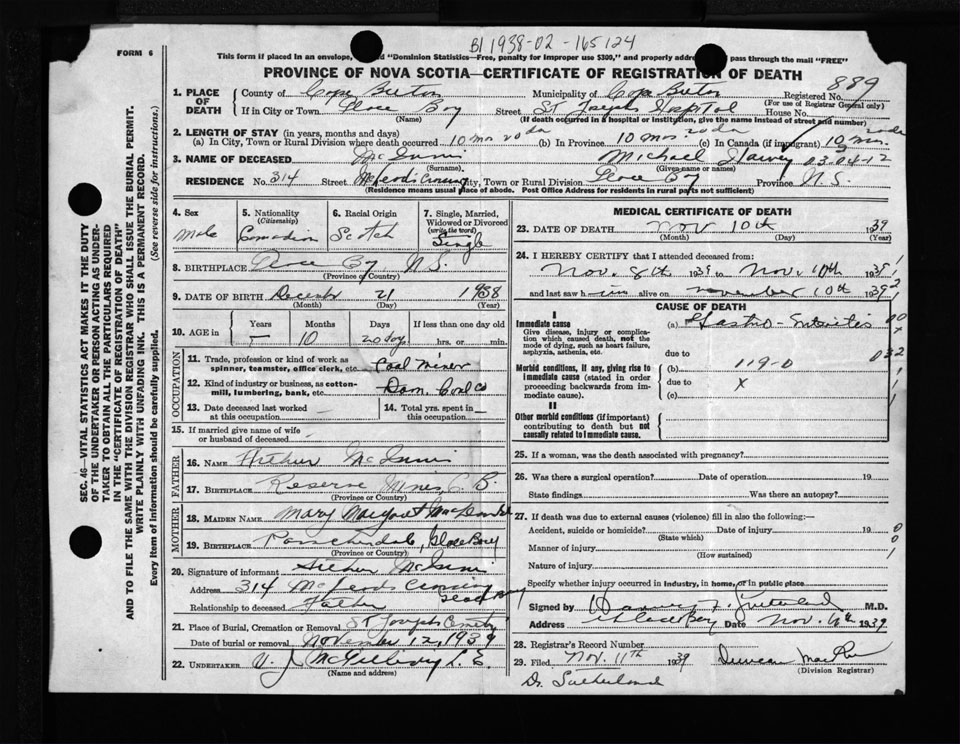 B1 1938-02-165124
FORM 6
This form if placed in an envelope, "Dominion Statistics—Free, penalty for improper use $300," and properly addre pass through the mail "FREE"
PROVINCE OF NOVA SCOTIA—CERTIFICATE OF REGISTRATION OF DEATH
889
1. PLACE OF DEATH County of Cape Breton Municipality of Cape Breton Registered No.
(For use of Registrar General only)
If in City or Town Glace Bay Street St Josephs Hospital House No.
(Name) (If death occurred in a hospital or institution, give the name instead of street and number)
2. LENGTH OF STAY (in years, months and days)
(a) In City, Town or Rural Division where death occurred 10 mos 20 da (b) In Province 10 mos 20 da (c) In Canada (if immigrant) 10 mos 20 da
3. NAME OF DECEASED McInnis Michael Harvey 03-04-12
(Surname) (Given name or names)
RESIDENCE No. 314 Street McLeods Crossing City, Town or Rural Division Glace Bay Province N.S.
(Residence means usual place of abode. Post Office Address for residents in rural parts not sufficient)
4. Sex Male
5. Nationality (Citizenship) Canadian
6. Racial Origin Scotch
7. Single, Married, Widowed or Divorced (write the word) Single
8. BIRTHPLACE Glace Bay N.S.
(Province or Country)
9. DATE OF BIRTH December 21 1938
(Month) (Day) (Year)
10. AGE in Years Months Days If less than one day old
10 20 days hrs. or min.
OCCUPATION
11. Trade, profession or kind of work as spinner, teamster, office clerk, etc. Coal Miner
12. Kind of industry or business, as cotton-mill, lumbering, bank, etc. Dom. Coal Co
13. Date deceased last worked at this occupation
14. Total yrs. spent in this occupation
15. If married give name of wife or husband of deceased
FATHER
16. NAME Arthur McInnis
17. BIRTHPLACE Reserve Mines, C.B.
(Province or Country)
MOTHER
18. MAIDEN NAME Mary Margaret
19. BIRTHPLACE Glace Bay
(Province or Country)
20. Signature of informant Arthur McInnis
Address 314 McLeods Crossing Glace Bay
Relationship to deceased Father
21. Place of Burial, Cremation or Removal St Josephs Cemetry
Date of burial or removal November 12, 1939
22. UNDERTAKER V. J. McGillivray
(Name and address)
MEDICAL CERTIFICATE OF DEATH
23. DATE OF DEATH Nov 10th 1939
(Month) (Day) (Year)
24. I HEREBY CERTIFY that I attended deceased from:
Nov. 8th 1939 to Nov. 10th 1939
and last saw him alive on November 10th 1939
CAUSE OF DEATH
I
Immediate cause (a) Gastro-Enteritis
Give disease, injury or complication which caused death, not the mode of dying, such as heart failure, asphyxia, asthenia, etc.
due to
Morbid conditions, if any, giving rise to immediate cause (stated in order proceeding backwards from immediate cause).
(b) 119-0 032
due to X
(c)
II
Other morbid conditions (if important) contributing to death but not causally related to immediate cause.
25. If a woman, was the death associated with pregnancy?
26. Was there a surgical operation? Date of operation 19
State findings Was there an autopsy?
27. If death was due to external causes (violence) fill in also the following:—
Accident, suicide or homicide? Date of injury 19
(State which)
Manner of injury
(How sustained)
Nature of injury
Specify whether injury occurred in industry, in home, or in public place
Signed by Sutherland M.D.
Address Glace Bay Date Nov. 1939
28. Registrar's Record Number
29. Filed Nov. 11th 1939 Duncan MacRae
(Division Registrar)
Dr. Sutherland
SEC. 46—VITAL STATISTICS ACT MAKES IT THE DUTY
OF THE UNDERTAKER OR PERSON ACTING AS UNDER-
TAKER TO OBTAIN ALL THE PARTICULARS REQUIRED
IN THE "CERTIFICATE OF REGISTRATION OF DEATH"
AND TO FILE THE SAME WITH THE DIVISION REGISTRAR WHO SHALL ISSUE THE BURIAL PERMIT.
WRITE PLAINLY WITH UNFADING INK. THIS IS A PERMANENT RECORD.
Every item of information should be carefully supplied. (See reverse side for instructions.)